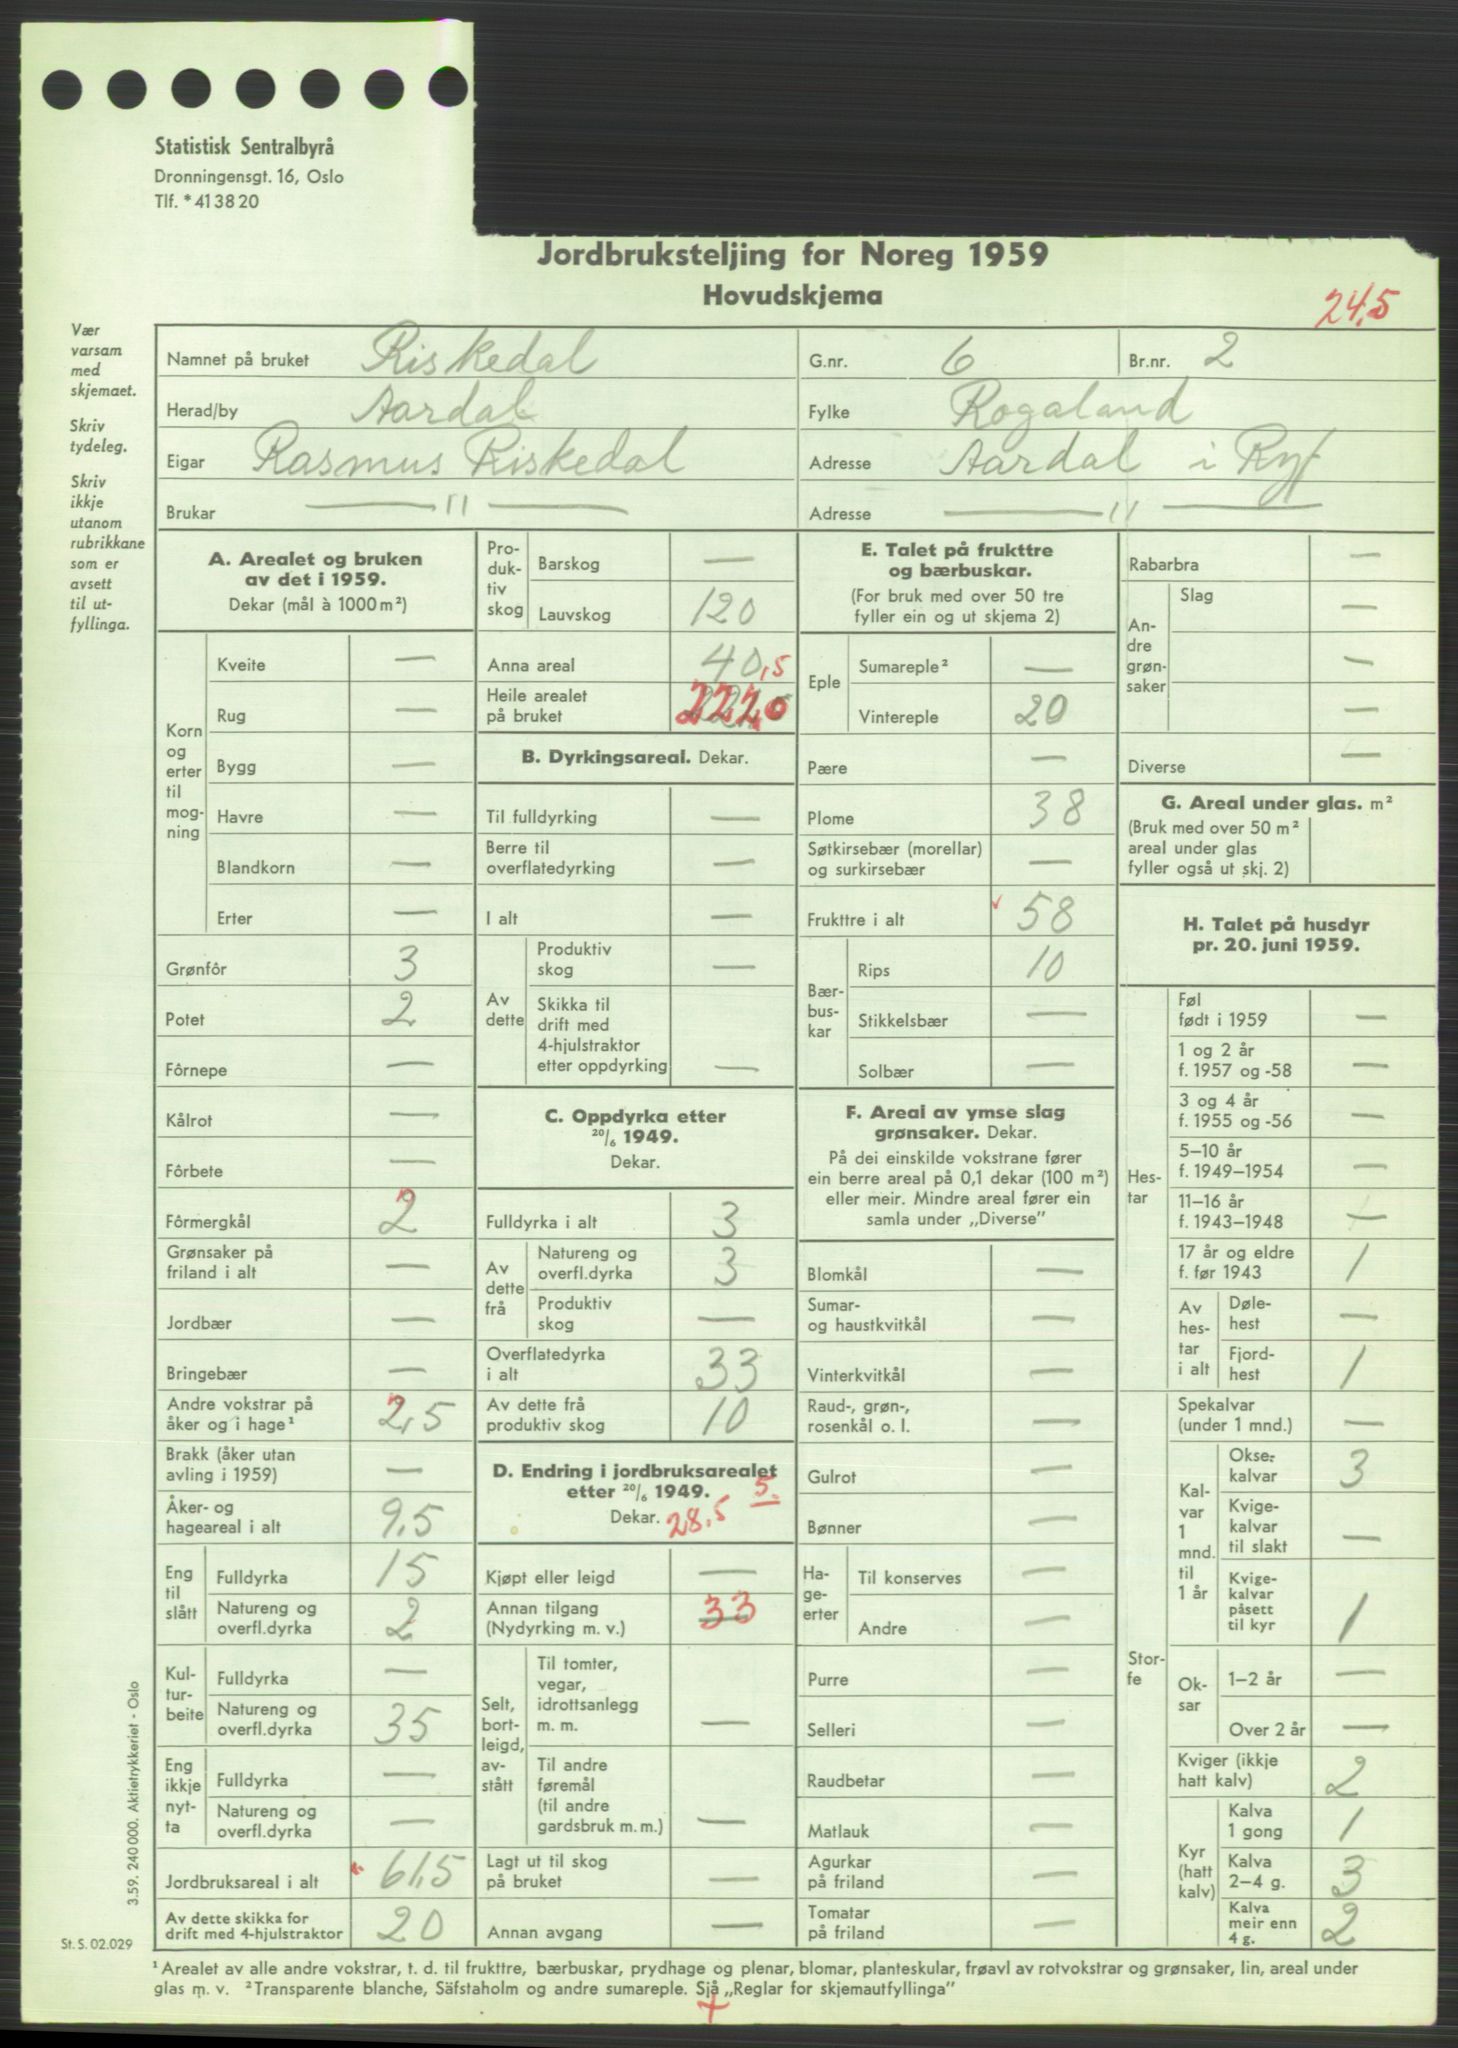 Statistisk Sentralbyrå
Dronningensgt. 16, Oslo
Tlf. *413820
Jordbruksteljing for Noreg 1959
Hovudskjema
24,5
Vær
varsam
med
skjemaet.
Skriv
tydeleg.
Skriv
ikkje
utanom
rubrikkane
som er
avsett
til ut-
fyllinga.
Namnet på bruket Riskedal G.nr. 6 Br.nr. 2
Herad/by Aardal Fylke Rogaland
Eigar Rasmus Riskedal Adresse Aardal i Ryf
Brukar — 11 — Adresse — 11 —
A. Arealet og bruken
av det i 1959.
Dekar (mål à 1000 m²)
Korn og erter til mog-ning
Kveite —
Rug —
Bygg —
Havre —
Blandkorn —
Erter —
Grønfôr 3
Potet 2
Fôrnepe —
Kålrot —
Fôrbete —
Fôrmergkål 2
Grønsaker på
friland i alt —
Jordbær —
Bringebær —
Andre vokstrar på
åker og i hage¹ 2,5
Brakk (åker utan
avling i 1959) —
Åker- og
hageareal i alt 9,5
Eng til slått
Fulldyrka 15
Natureng og
overfl.dyrka 2
Kul-tur-beite
Fulldyrka —
Natureng og
overfl.dyrka 35
Eng ikkje nyt-ta
Fulldyrka —
Natureng og
overfl.dyrka —
Jordbruksareal i alt 61,5
Av dette skikka for
drift med 4-hjulstraktor 20
Pro-duk-tiv skog
Barskog —
Lauvskog 120
Anna areal 40,5
Heile arealet
på bruket 222,0
B. Dyrkingsareal. Dekar.
Til fulldyrking —
Berre til
overflatedyrking —
I alt —
Av dette
Produktiv
skog —
Skikka til
drift med
4-hjulstraktor
etter oppdyrking —
C. Oppdyrka etter
20/6 1949.
Dekar.
Fulldyrka i alt 3
Av dette frå
Natureng og
overfl.dyrka 3
Produktiv
skog —
Overflatedyrka
i alt 33
Av dette frå
produktiv skog 10
D. Endring i jordbruksarealet
etter 20/6 1949. 5.
Dekar. 28,5
Kjøpt eller leigd —
Annan tilgang
(Nydyrking m. v.) 33
Selt, bort-leigd, av-stått
Til tomter,
vegar,
idrottsanlegg
m. m. —
Til andre
føremål
(til andre
gardsbruk m.m.) —
Lagt ut til skog
på bruket —
Annan avgang —
E. Talet på frukttre
og bærbuskar.
(For bruk med over 50 tre
fyller ein og ut skjema 2)
Eple
Sumareple² —
Vintereple 20
Pære —
Plome 38
Søtkirsebær (morellar)
og surkirsebær —
Frukttre i alt 58
Bær-bus-kar
Rips 10
Stikkelsbær —
Solbær —
F. Areal av ymse slag
grønsaker. Dekar.
På dei einskilde vokstrane fører
ein berre areal på 0,1 dekar (100 m²)
eller meir. Mindre areal fører ein
samla under „Diverse”
Blomkål —
Sumar-
og haustkvitkål —
Vinterkvitkål —
Raud-, grøn-,
rosenkål o. l. —
Gulrot —
Bønner —
Ha-ge-erter
Til konserves —
Andre —
Purre —
Selleri —
Raudbetar —
Matlauk —
Agurkar
på friland —
Tomatar
på friland —
Rabarbra —
An-dre grøn-saker
Slag —
—
—
Diverse —
G. Areal under glas. m²
(Bruk med over 50 m²
areal under glas
fyller også ut skj. 2)
H. Talet på husdyr
pr. 20. juni 1959.
Hes-tar
Føl
født i 1959 —
1 og 2 år
f. 1957 og -58 —
3 og 4 år
f. 1955 og -56 —
5–10 år
f. 1949–1954 —
11–16 år
f. 1943–1948 —
17 år og eldre
f. før 1943 1
Av hes-tar i alt
Døle-
hest —
Fjord-
hest 1
Stor-fe
Spekalvar
(under 1 mnd.) —
Kal-var 1 mnd. til 1 år
Okse-
kalvar 3
Kvige-
kalvar
til slakt —
Kvige-
kalvar
påsett
til kyr 1
Ok-sar
1–2 år —
Over 2 år —
Kviger (ikkje
hatt kalv) 2
Kyr (hatt kalv)
Kalva
1 gong 1
Kalva
2–4 g. 3
Kalva
meir enn
4 g. 2
3.59. 240 000. Aktietrykkeriet - Oslo
St. S. 02.029
¹ Arealet av alle andre vokstrar, t. d. til frukttre, bærbuskar, prydhage og plenar, blomar, planteskular, frøavl av rotvokstrar og grønsaker, lin, areal under
glas m. v. ² Transparente blanche, Säfstaholm og andre sumareple. Sjå „Reglar for skjemautfyllinga”
+